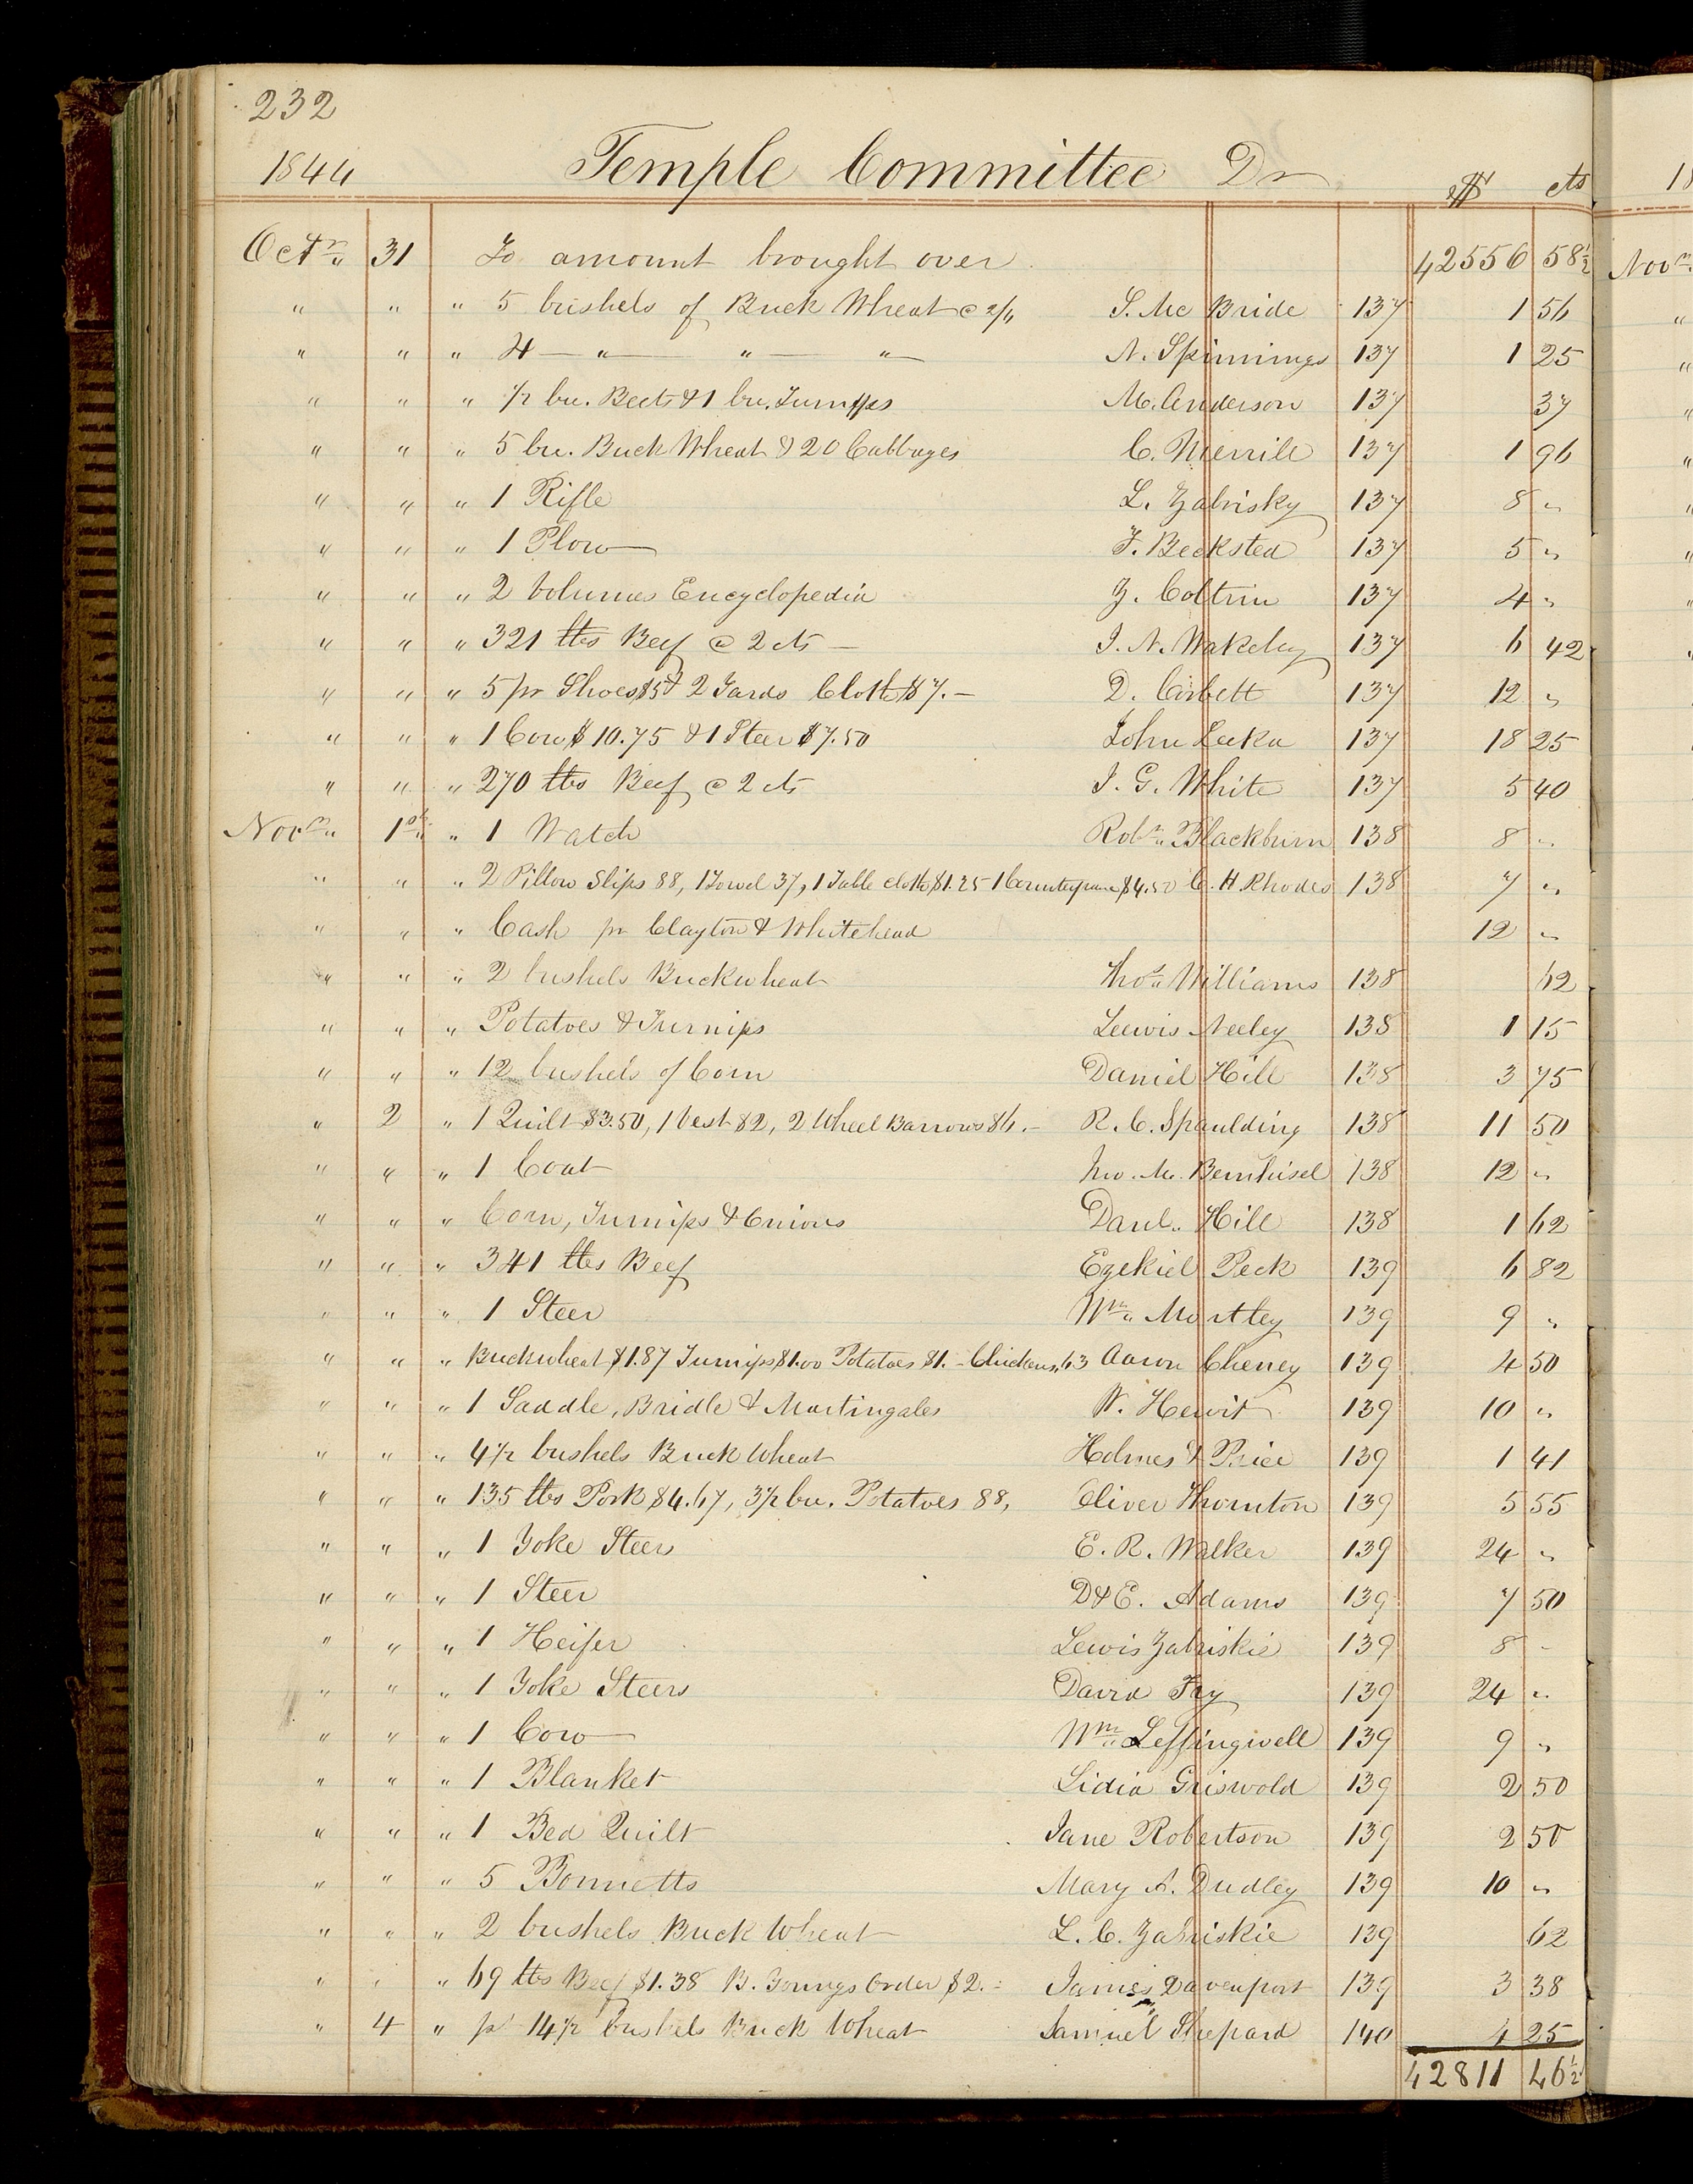 232
1844 Temple Committee Dr $ cts
Octr. 31 To amount brought over 42556 58½
" " " 5 bushels of Buck Wheat @ 2/6 S. Mc Bride 137 1 56
" " " 4 — " — " — " — N. Spinnings 137 1 25
" " " ½ bu. Beets & 1 bu. Turnips M. Anderson 137 37
" " " 5 bu. Buck Wheat & 20 Cabbages C. Merrill 137 1 96
" " " 1 Rifle L. Zabrisky 137 8 "
" " " 1 Plow F. Becksted 137 5 "
" " " 2 Volumes Encyclopedia Z. Coltrin 137 4 "
" " " 321 lbs Beef @ 2 cts — J. N. Wakeley 137 6 42
" " " 5 pr Shoes $5 & 2 Yards Cloth $7.— D. Corbett 137 12 "
" " " 1 Cow $10.75 & 1 Steer $7.50 John Leeka 137 18 25
" " " 270 lbs Beef @ 2 cts J. G. White 137 5 40
Novr. 1st. " 1 Watch Robt. Blackburn 138 8 "
" " " 2 Pillow Slips 88, 1 Towel 37, 1 Table cloth $1.25 1 Counterpane $4.50 C. H. Rhodes 138 7 "
" " " Cash pr Clayton & Whitehead 12 "
" " " 2 bushels Buckwheat Thos. Williams 138 62
" " " Potatoes & Turnips Leewis Neeley 138 1 15
" " " 12 bushels of Corn Daniel Hill 138 3 75
" 2 " 1 Quilt $3.50, 1 Vest $2, 2 Wheel Barrows $6.— R. C. Spaulding 138 11 50
" " " 1 Coat Jno. M. Bernhisel 138 12 "
" " " Corn, Turnips & Onions Danl. Hill 138 1 62
" " " 341 lbs Beef Ezekiel Peck 139 6 82
" " " 1 Steer Wm. Mortley 139 9 "
" " " Buckwheat $1.87 Turnips $1.00 Potatoes $1.— Chickens, 63 Aaron Cheney 139 4 50
" " " 1 Saddle, Bridle & Martingales W. Hewit 139 10 "
" " " 4½ bushels Buck Wheat Holmes & Price 139 1 41
" " " 135 lbs Pork $4.67, 3½ bu. Potatoes 88, Oliver Thornton 139 5 55
" " " 1 Yoke Steers E. R. Walker 139 24 "
" " " 1 Steer D & E. Adams 139 7 50
" " " 1 Heifer Lewis Zabriskie 139 8 -
" " " 1 Yoke Steers David Fry 139 24 "
" " " 1 Cow Wm. Leffingwell 139 9 "
" " " 1 Blanket Lidia Griswold 139 2 50
" " " 1 Bed Quilt Jane Robertson 139 2 50
" " " 5 Bonnetts Mary A. Dudley 139 10 "
" " " 2 bushels Buck Wheat L. C. Zabriskie 139 62
" " " 69 lbs Beef $1.38 B. Youngs Order $2.— James Davenport 139 3 38
" 4 " pr 14½ bushels Buck Wheat Samuel Shepard 140 4 25
42811 46½
18
Novr.